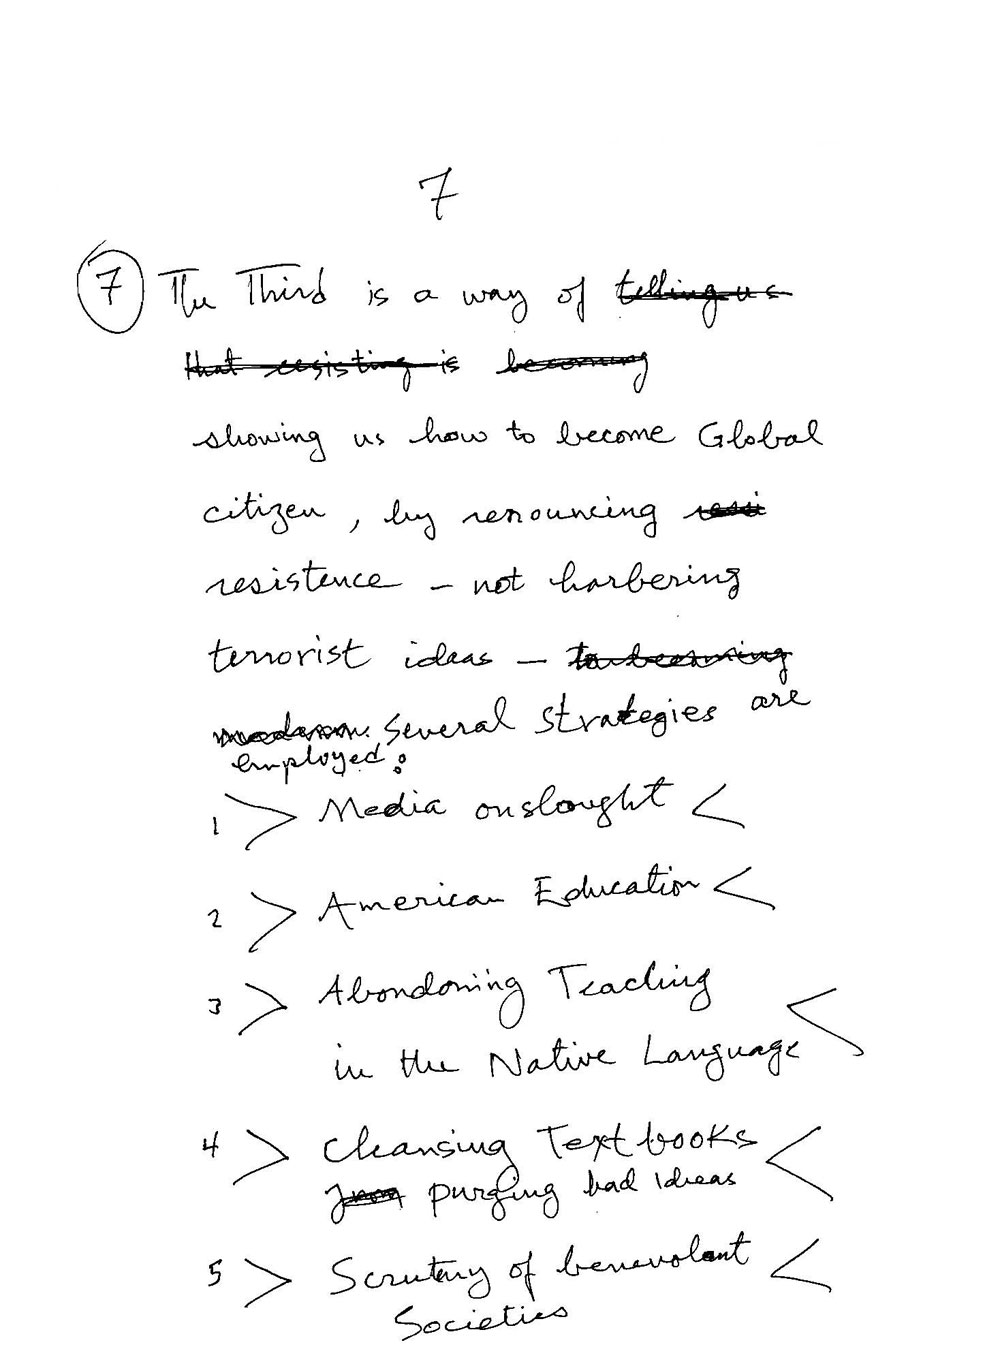 7
7 The Third is a way of telling us
that resisting is becoming
showing us how to become Global
citizen, by renouncing resi
resistence - not harbering
terrorist ideas - to becoming
modern. Several strategies are
employed:
1 > Media onslought <
2 > American Education <
3 > Abondoning Teaching <
in the Native Language
4 > Cleansing Textbooks <
from purging bad ideas
5 > Scrutiny of benevolent <
Societies